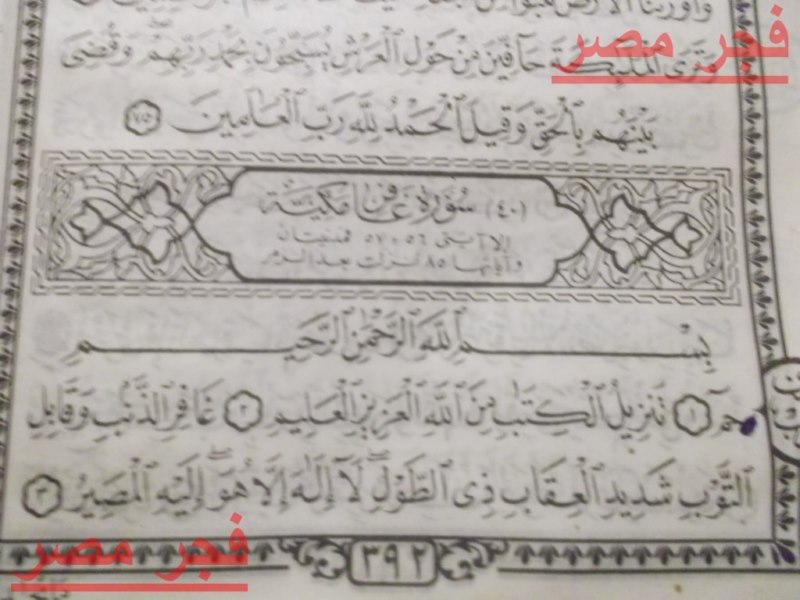 وأورثنا الأرض نتبوأ من
فجر مصر
وَتَرَى ٱلْمَلَٰٓئِكَةَ حَآفِّينَ مِنْ حَوْلِ ٱلْعَرْشِ يُسَبِّحُونَ بِحَمْدِ رَبِّهِمْ ۖ وَقُضِىَ
بَيْنَهُم بِٱلْحَقِّ وَقِيلَ ٱلْحَمْدُ لِلَّهِ رَبِّ ٱلْعَٰلَمِينَ ٧٥
(٤٠) سُورَة غَافِر مَكِيَّة
إلا آيتى ٥٦ و ٥٧ فمدنيتان
وآياتها ٨٥ نزلت بعد الزمر
بِسْمِ ٱللَّهِ ٱلرَّحْمَٰنِ ٱلرَّحِيمِ
حمٓ ١ تَنزِيلُ ٱلْكِتَٰبِ مِنَ ٱللَّهِ ٱلْعَزِيزِ ٱلْعَلِيمِ ٢ غَافِرِ ٱلذَّنۢبِ وَقَابِلِ
ٱلتَّوْبِ شَدِيدِ ٱلْعِقَابِ ذِى ٱلطَّوْلِ ۖ لَآ إِلَٰهَ إِلَّا هُوَ ۖ إِلَيْهِ ٱلْمَصِيرُ ٣
فجر مصر
٣٩٢